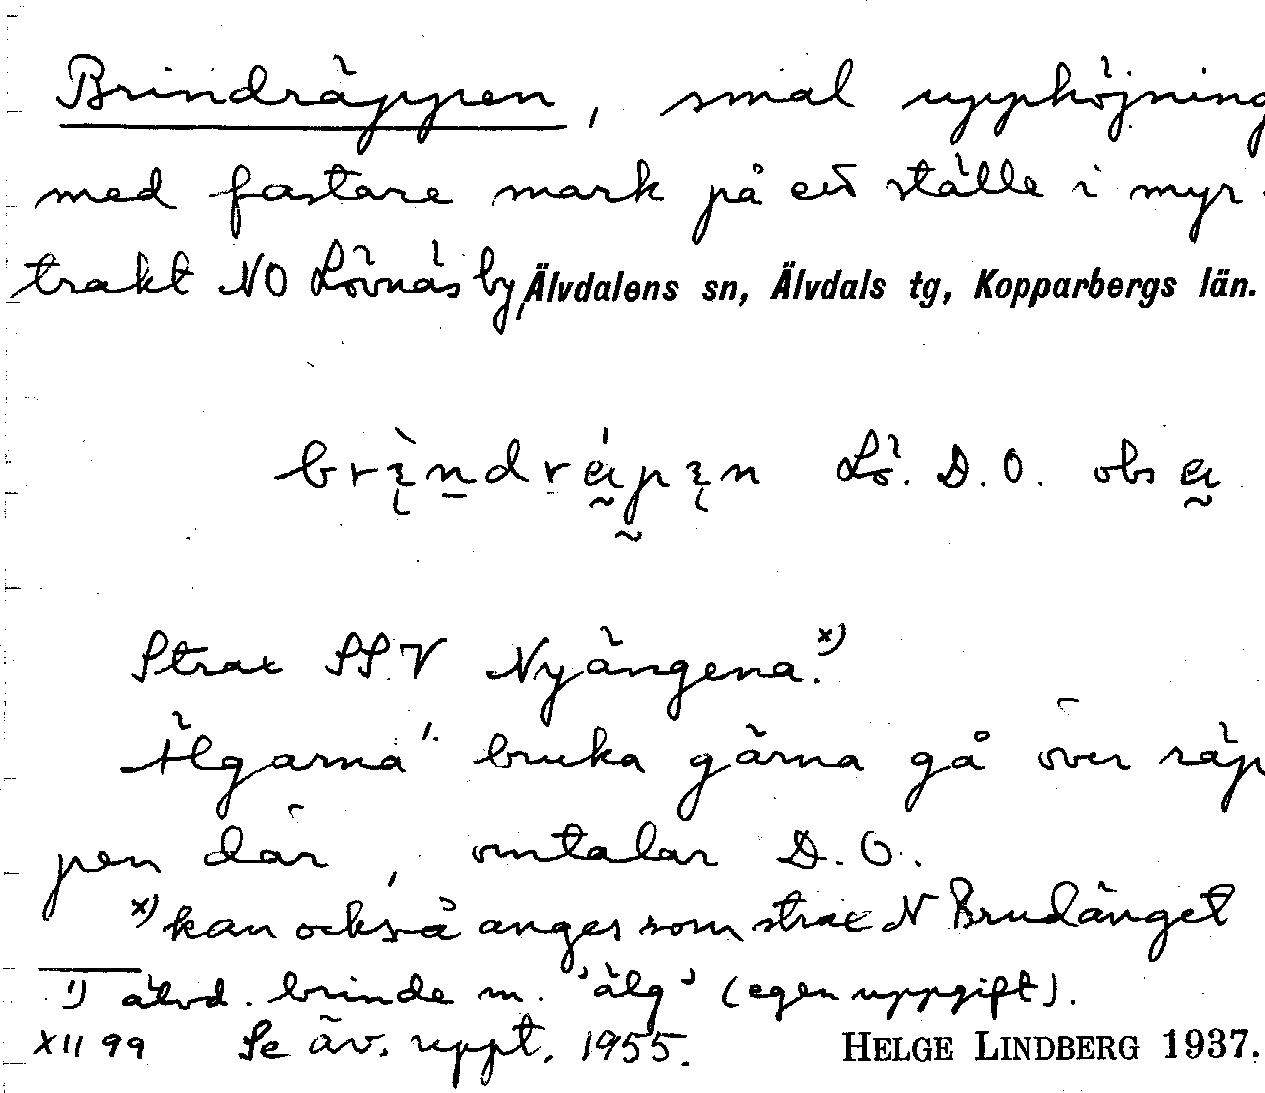 Brindräppen, smal upphöjning
med fastare mark på ett ställe i myr-
trakt NO Lövnäs by, Älvdalens sn, Älvdals tg, Kopparbergs län.
Lö. D. O. obs
Strax SSV Nyängena.x)
Älgarna1) bruka gärna gå över räp-
pen där, omtalar D. O.
x) kan också anges som strax N Brudänget
1) älvd. brinde m. 'älg' (egen uppgift).
XII 99 Se äv. uppt. 1955. HELGE LINDBERG 1937.